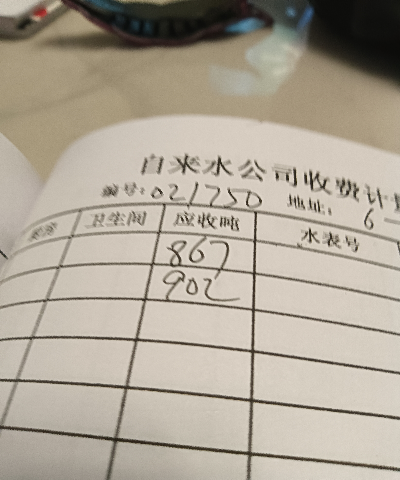 自来水公司收费计
编号:021750 地址: 6
卫生间 应收吨 水表号
867
902